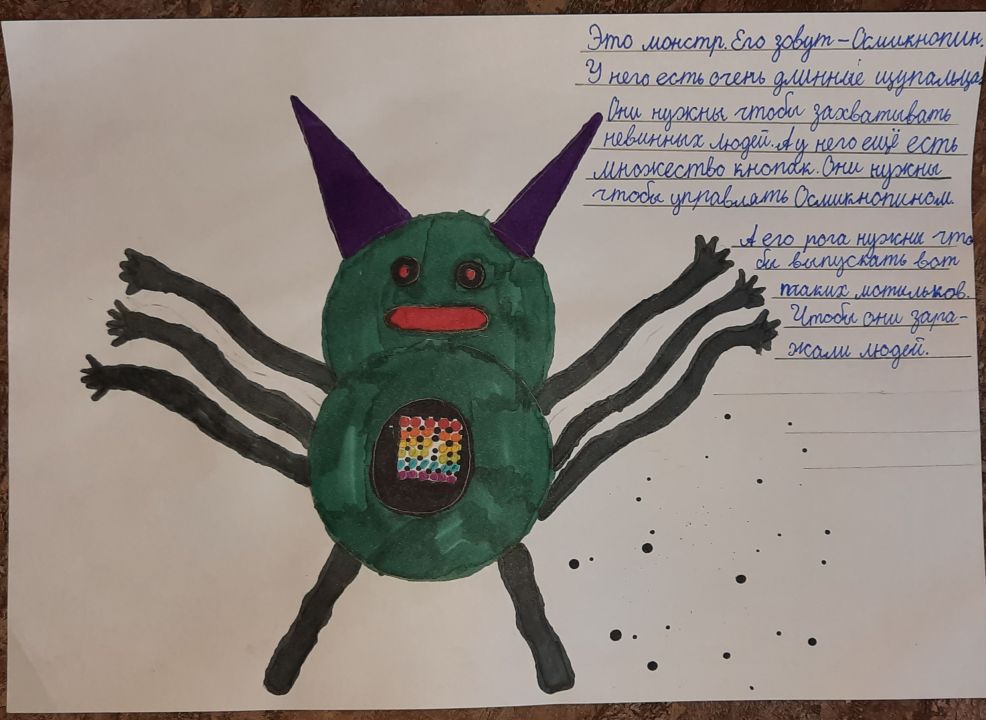 Это монстр. Его зовут - Осмикнопин.
У него есть очень длинные щупальца.
Они нужны чтобы захватывать
невинных людей. А у него ещё есть
множество кнопок. Они нужны
чтобы управлять Осмикнопином.
А его рога нужны что
бы выпускать вот
таких мотильков.
Чтобы они зара-
жали людей.